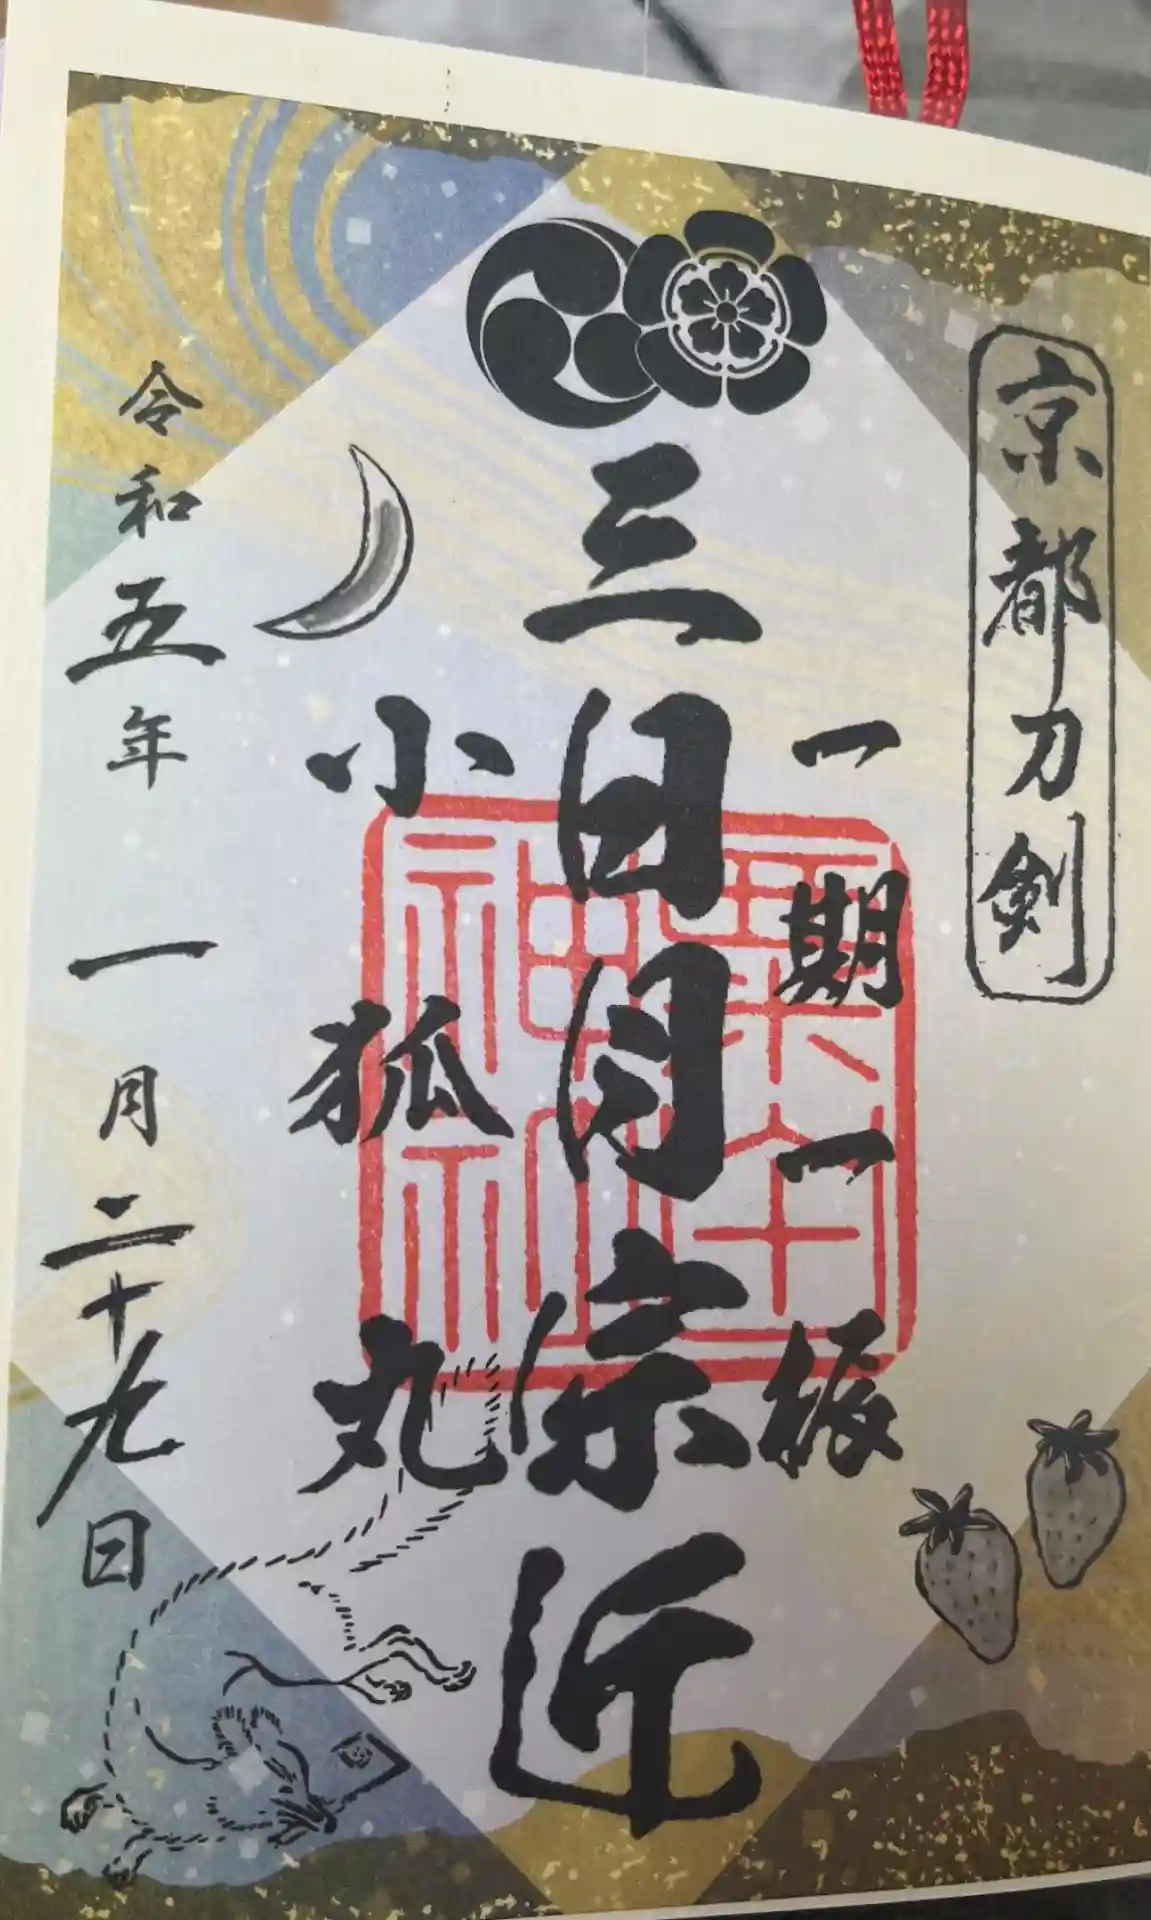 京都刀剣
一期一振
三日月宗近
小狐丸
令和五年一月二十九日
粟田神社